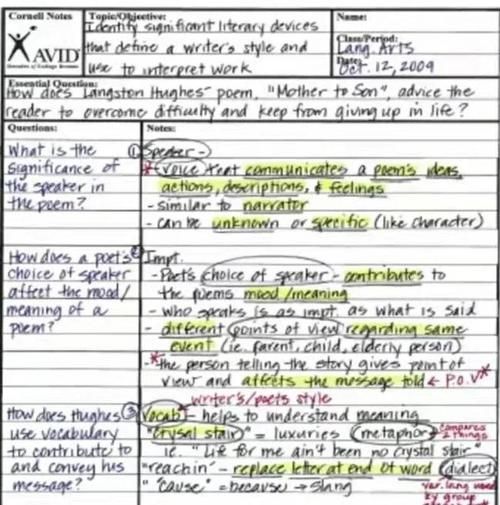 Cornell Notes
AVID
Topic/Objective:
Identify significant literary devices
that define a writer's style and
use to interpret work
Name:
Class/Period:
Lang. Arts
Date:
Oct. 12, 2009
Essential Question:
How does Langston Hughes' poem, "Mother to Son", advice the
reader to overcome difficulty and keep from giving up in life?
Questions:
Notes:
What is the
significance of
the speaker in
the poem?
① Speaker -
* voice that communicates a poem's ideas,
actions, descriptions, & feelings
- similar to narrator
- can be unknown or specific (like character)
How does a poet's
choice of speaker
affect the mood/
meaning of a
poem?
② Impt.
- Poet's choice of speaker - contributes to
the poems mood/meaning
- who speaks is as impt. as what is said
- different points of view regarding same
event (ie. parent, child, elderly person)
- *the person telling the story gives point of
view and affects the message told ← P.O.V*
writer's/poets style
How does Hughes
use vocabulary
to contribute to
and convey his
message?
③ Vocab - helps to understand meaning
"crysal stair" = luxuries (metaphor) compares
2 things
ie. "Life for me ain't been no crystal stair
"reachin" - replace letter at end of word (dialect)
" 'cause" = because → slang
var. lang used
by group